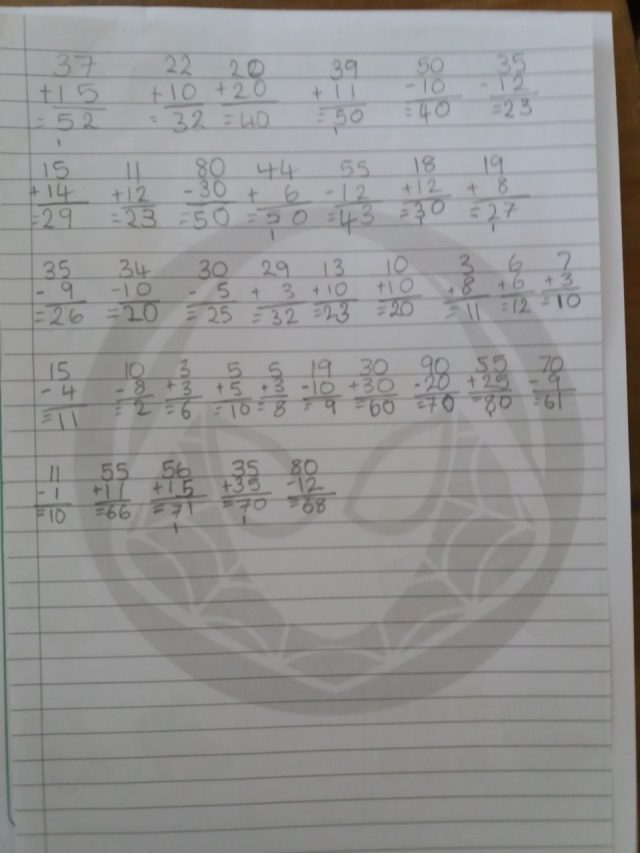 37 22 20 39 50 35
+15 +10 +20 +11 -10 -12
=52 =32 =40 =50 =40 =23
1 1
15 11 80 44 55 18 19
+14 +12 -30 + 6 -12 +12 + 8
=29 =23 =50 =50 =43 =30 =27
1 1 1
35 34 30 29 13 10 3 6 7
- 9 -10 - 5 + 3 +10 +10 +8 +6 +3
=26 =20 =25 =32 =23 =20 =11 =12 =10
15 10 3 5 5 19 30 90 55 70
- 4 -8 +3 +5 +3 -10 +30 -20 +25 - 9
=11 =2 =6 =10 =8 =9 =60 =70 =80 =61
1
11 55 56 35 80
-1 +11 +15 +35 -12
=10 =66 =71 =70 =68
1 1